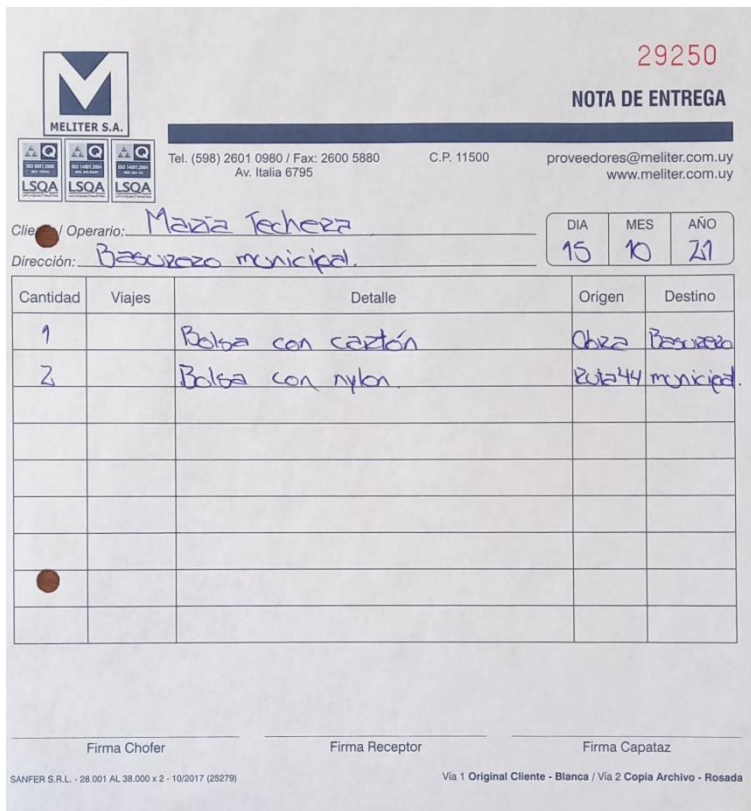 29250
NOTA DE ENTREGA
MELITER S.A.
LSQA LSQA LSQA
Tel. (598) 2601 0980 / Fax: 2600 5880 C.P. 11500 proveedores@meliter.com.uy
Av. Italia 6795 www.meliter.com.uy
/ Operario: Maria Techera
DIA MES AÑO
Dirección: Basurero municipal. 15 10 21
Cantidad Viajes Detalle Origen Destino
1 Bolsa con cartón Obra Basurero
2 Bolsa con nylon. Ruta 44 municipal.
Firma Chofer Firma Receptor Firma Capataz
SANFER S.R.L. - 28 001 AL 38.000 x 2 - 10/2017 (25279) Vía 1 Original Cliente - Blanca / Vía 2 Copia Archivo - Rosada